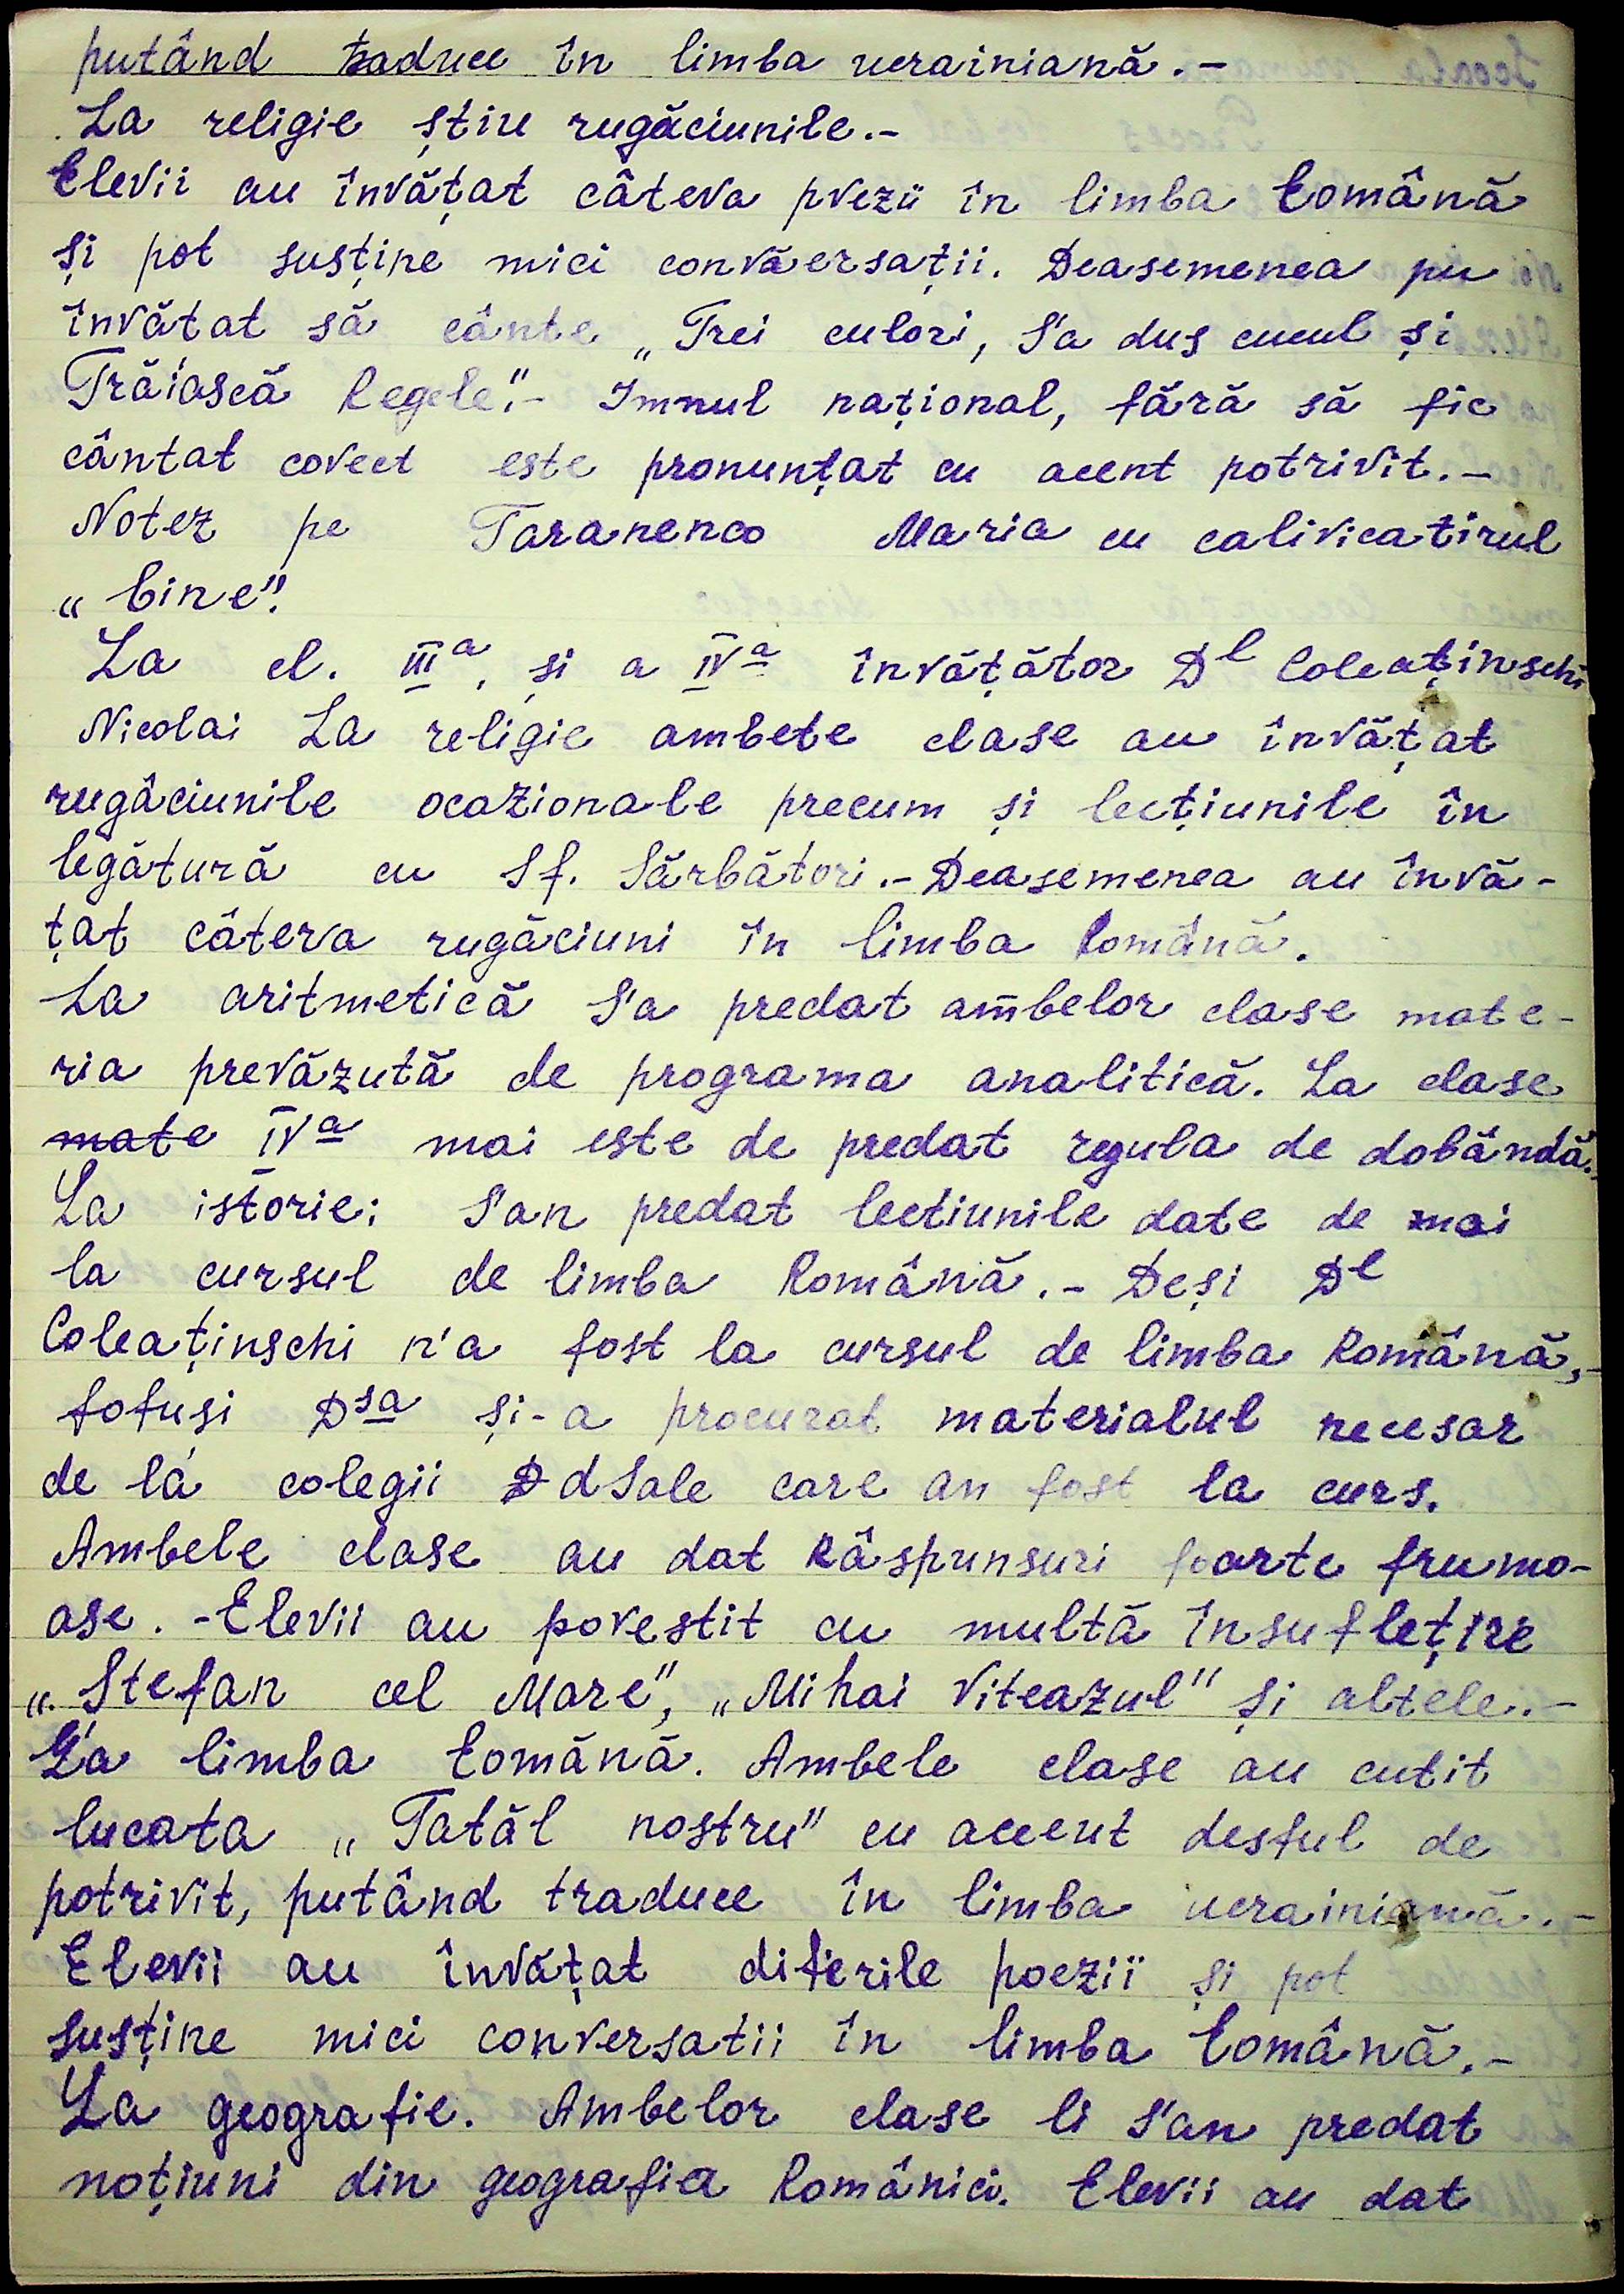 putând traduce în limba ucrainiană.-
La religie știu rugăciunile.-
Elevii au învățat câteva pvezii în limba Română
și pot susține mici convăersații. Deasemenea pu
învătat să cânte „Trei culori, S'a dus cucul și
Trăiască Regele".- Imnul național, fără să fie
cântat covect este pronunțat cu acent potrivit.-
Notez pe Taranenco Maria cu calivicatirul
„bine".
La cl. III a, și a IV a învățător Dl Coleaținschi
Nicolai La religie ambete clase au învățat
rugăciunile ocazionale precum și lecțiunile în
legătură cu Sf. Sărbători.- Deasemenea au învă-
țat câteva rugăciuni în limba Română.
La aritmetică S'a predat ambelor clase mate-
ria prevăzută de programa analitică. La clase
mate IV a mai este de predat regula de dobândă.
La istorie: S'au predat lectiunile date de mai
la cursul de limba Română.- Deși Dl
Coleaținschi n'a fost la cursul de limba Română,-
totuși Dsa și-a procurat materialul necesar
de la colegii D dSale care au fost la curs.
Ambele clase au dat Râspunsuri foarte frumo-
ase.-Elevii au povestit cu multă însuflețire
„Stefan cel Mare", „Mihai Viteazul" și altele.-
La limba Română. Ambele clase au cutit
lucata „Tatăl nostru" cu accent destul de
potrivit, putând traduce în limba ucrainiană.-
Elevii au învățat diferile poezii și pot
susține mici conversatii în limba Română.-
La geografie. Ambelor clase li s'au predat
noțiuni din geografia Românici. Elevii au dat